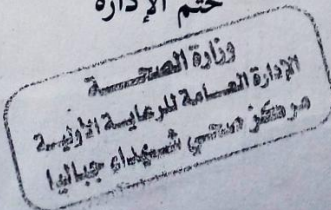 ختم الإدارة
وزارة الصحـــــــة
الإدارة العـــامة للرعايـة الأوليـة
مركز صحي شهداء جباليا